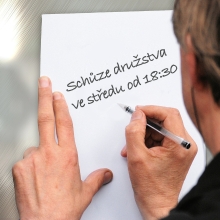 Schůze družstva
ve středu od 18:30